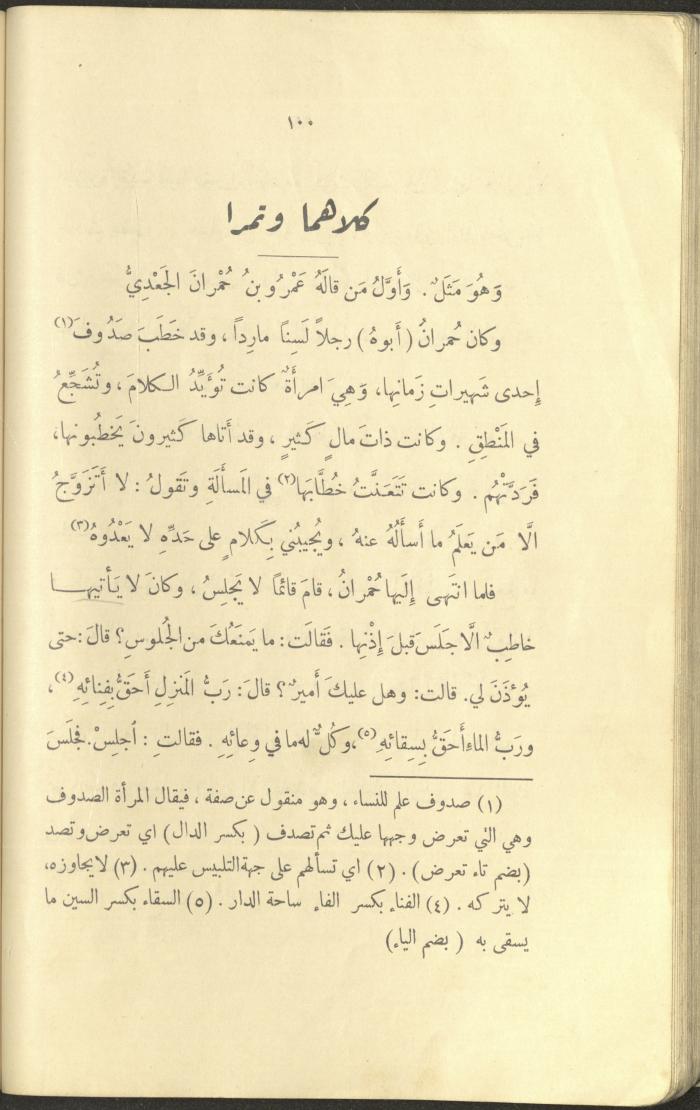 ١٠٠
كلاهما وتمرا
وَهُوَ مَثَلٌ. وَأَوَّلُ مَن قالَهُ عَمْرُو بنُ حُمْرانَ الجَعْدِيُّ
وكان حُمرانُ (أَبوهُ) رجلاً لَسِناً مارِداً، وقد خَطَبَ صَدُوفَ(١)
إِحدى شَهيراتِ زَمانِها، وَهِيَ امرأَةٌ كانت تُؤَيِّدُ الكلامَ، وتُشَجِّعُ
في المَنْطِقِ. وكانت ذاتَ مالٍ كَثيرٍ، وقد أَتاها كَثيرونَ يَخطُبونها،
فَرَدَّتْهُم. وكانت تَتَعَنَّتُ خُطَّابَها(٢) في المَسأَلَةِ وتَقولُ: لا أَتَزَوَّجُ
الَّا مَن يَعلَمُ ما أَسأَلُهُ عنهُ، ويُجيبُني بِكَلامٍ على حَدِّهِ لا يَعْدُوهُ(٣)
فلما انتَهى إِلَيها حُمْرانُ، قامَ قائمًا لا يَجلِسُ، وكانَ لا يَأتيهــا
خاطِبٌ الَّا جَلَسَ قبلَ إِذْنِها. فَقالَت: ما يَمنَعُكَ من الجُلوسِ؟ قالَ: حتى
يُؤذَنَ لي. قالت: وهل عليكَ أَميرٌ؟ قالَ: رَبُّ المَنزِلِ أَحَقُّ بِفِنائِهِ(٤)،
ورَبُّ الماءِ أَحَقُّ بِسِقائِهِ(٥)، وكُلٌّ له ما في وِعائِهِ. فقالتِ: اُجلِسْ. فجَلَسَ
(١) صدوف علم للنساء، وهو منقول عن صفة، فيقال المرأة الصدوف
وهي التي تعرض وجهها عليك ثم تصدف (بكسر الدال) اي تعرض وتصد
(بضم تاء تعرض). (٢) اي تسألهم على جهة التلبيس عليهم. (٣) لا يجاوزه،
لا يتركه. (٤) الفناء بكسر الفاء ساحة الدار. (٥) السقاء بكسر السين ما
يسقى به (بضم الياء)